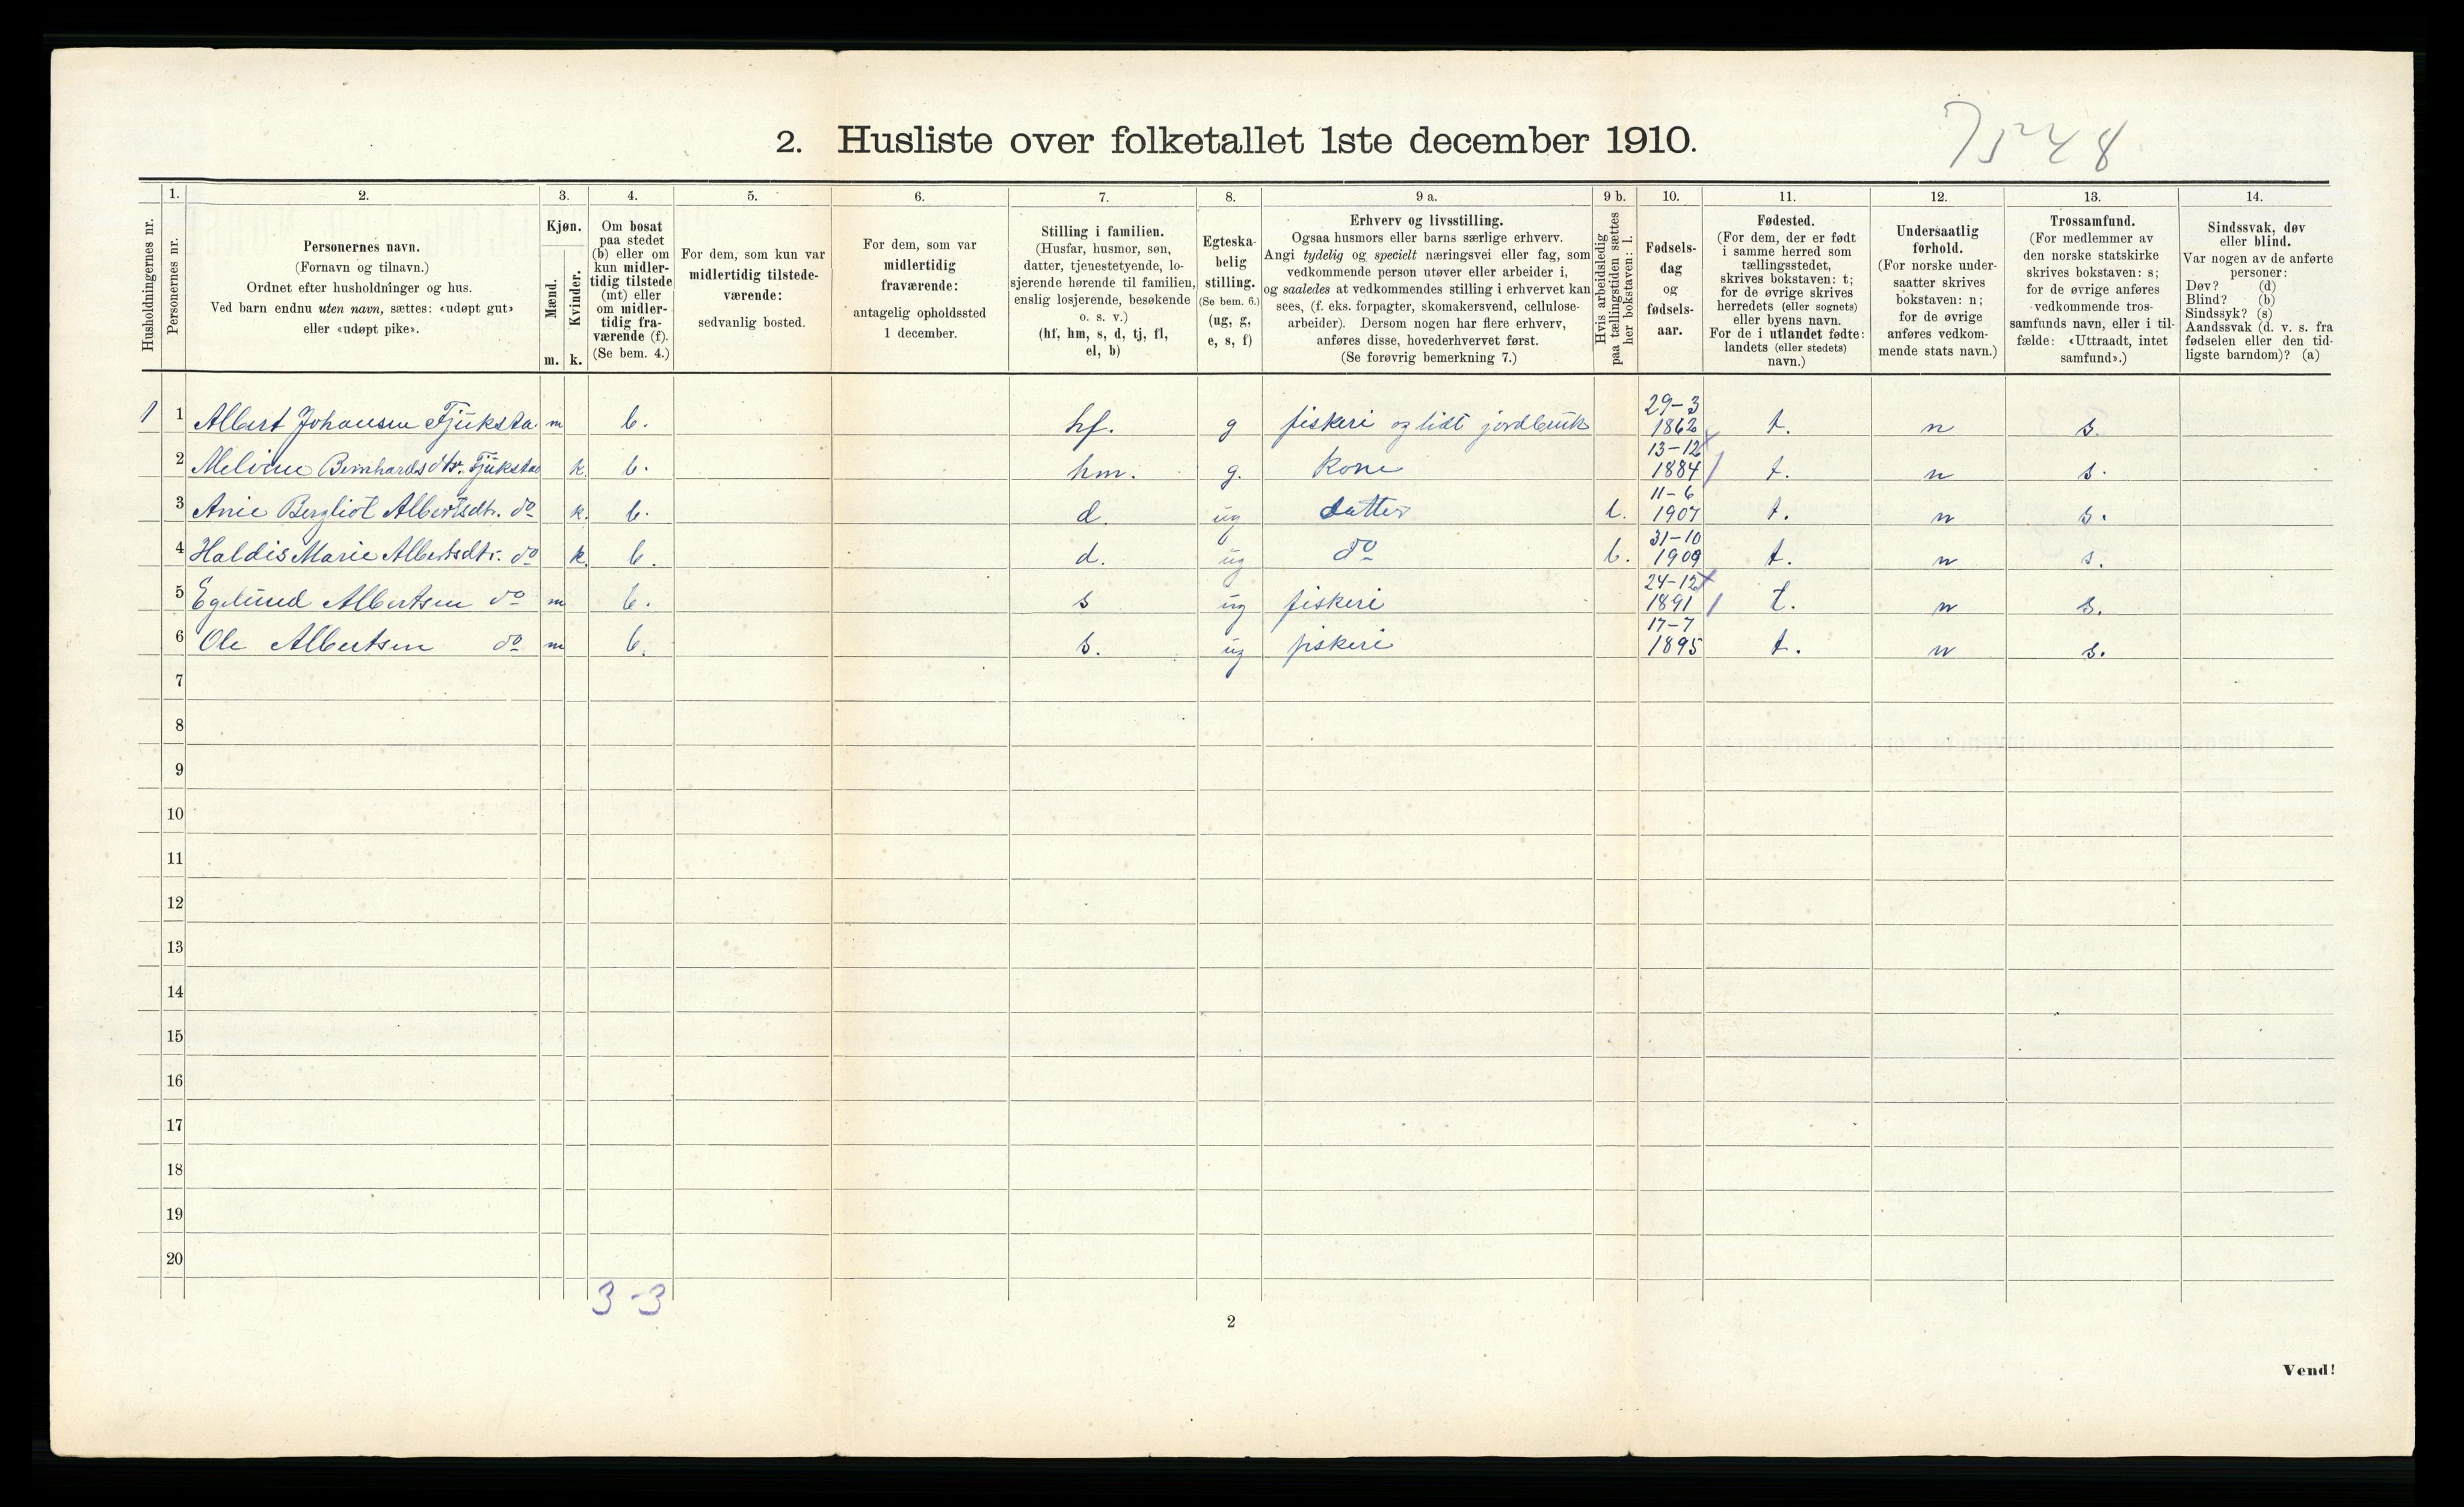 7548
2. Husliste over folketallet 1ste december 1910.
Husholdningernes nr.
1.
Personernes nr.
2.
Personernes navn.
(Fornavn og tilnavn.)
Ordnet efter husholdninger og hus.
Ved barn endnu uten navn, sættes: «udøpt gut»
eller «udøpt pike».
3.
Kjøn.
Mænd.
m.
Kvinder.
k.
4.
Om bosat
paa stedet
(b) eller om
kun midler-
tidig tilstede
(mt) eller
om midler-
tidig fra-
værende (f).
(Se bem. 4.)
5.
For dem, som kun var
midlertidig tilstede-
værende:
sedvanlig bosted.
6.
For dem, som var
midlertidig
fraværende:
antagelig opholdssted
1 december.
7.
Stilling i familien.
(Husfar, husmor, søn,
datter, tjenestetyende, lo-
sjerende hørende til familien,
enslig losjerende, besøkende
o. s. v.)
(hf, hm, s, d, tj, fl,
el, b)
8.
Egteska-
belig
stilling.
(Se bem. 6.)
(ug, g,
e, s, f)
9 a.
Erhverv og livsstilling.
Ogsaa husmors eller barns særlige erhverv.
Angi tydelig og specielt næringsvei eller fag, som
vedkommende person utøver eller arbeider i,
og saaledes at vedkommendes stilling i erhvervet kan
sees, (f. eks. forpagter, skomakersvend, cellulose-
arbeider). Dersom nogen har flere erhverv,
anføres disse, hovederhvervet først.
(Se forøvrig bemerkning 7.)
9 b.
Hvis arbeidsledig
paa tællingstiden sættes
her bokstaven: l.
10.
Fødsels-
dag
og
fødsels-
aar.
11.
Fødested.
(For dem, der er født
i samme herred som
tællingsstedet,
skrives bokstaven: t;
for de øvrige skrives
herredets (eller sognets)
eller byens navn.
For de i utlandet fødte:
landets (eller stedets)
navn.)
12.
Undersaatlig
forhold.
(For norske under-
saatter skrives
bokstaven: n;
for de øvrige
anføres vedkom-
mende stats navn.)
13.
Trossamfund.
(For medlemmer av
den norske statskirke
skrives bokstaven: s;
for de øvrige anføres
vedkommende tros-
samfunds navn, eller i til-
fælde: «Uttraadt, intet
samfund».)
14.
Sindssvak, døv
eller blind.
Var nogen av de anførte
personer:
Døv? (d)
Blind? (b)
Sindssyk? (s)
Aandssvak (d. v. s. fra
fødselen eller den tid-
ligste barndom)? (a)
1 1 Albert Johansen Fjuksta m b. hf. g fiskeri og lidt jordbruk 29-3 1862 t. n s.
2 Meline Bernhardsdtr. Fjukstad k. b. hm. g. Kone 13-12 1884 t. n s.
3 Anie Bergliot Albertsdtr. do k. b. d. ug datter l. 11-6 1907 t. n s.
4 Haldis Marie Albertsdtr. do k. b. d. ug do l. 31-10 1909 t. n s.
5 Egelund Albertsen do m b. s ug fiskeri 24-12 1891 t. n s.
6 Ole Albertsen do m b. s. ug fiskeri 17-7 1895 t. n s.
7
8
9
10
11
12
13
14
15
16
17
18
19
20
3-3
2
Vend!